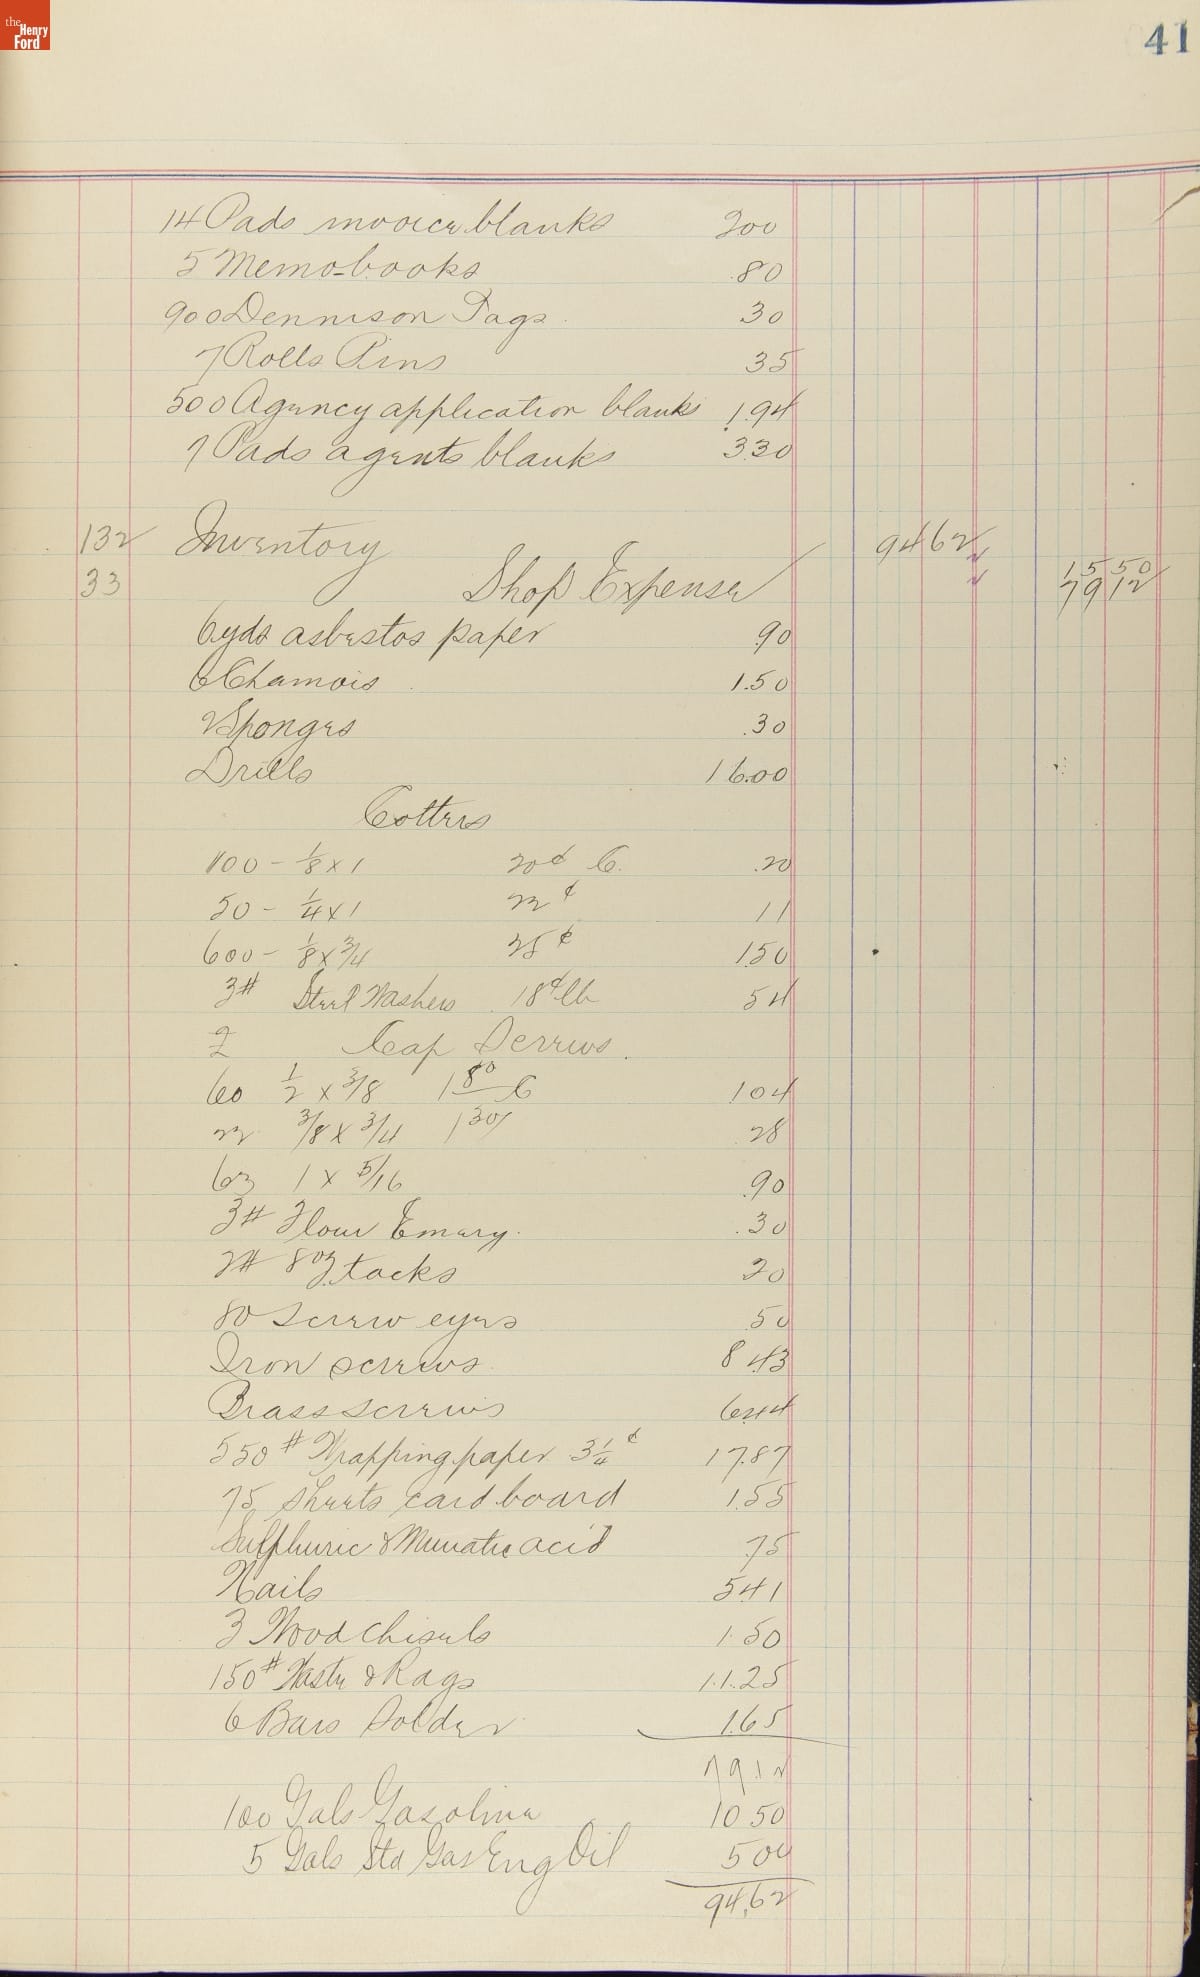 the Henry Ford
41
14 Pads invoice blanks 200
5 Memo-books .80
900 Dennison Tags 30
7 Rolls Pins 35
500 Agency application blanks 1.94
7 Pads agents blanks 3.30
132 Inventory 9462
1550
33 Shop Expense 7912
6 yds asbestos paper .90
6 Chamois 1.50
2 Sponges .30
Drills 16.00
Cotters
100 - 1/8 x 1 20¢ C. .20
50 - 1/4 x 1 22¢ 11
600 - 1/8 x 3/4 25¢ 1.50
3# Steel Washers 18¢ lb 54
Cap Screws.
60 1/2 x 3/8 1 80 C 104
22 3/8 x 3/4 1 30 28
63 1 x 5/16 .90
3# Flour Emery. .30
2# 8 oz tacks 20
80 Screw eyes 50
Iron screws 8 43
Brass screws 6.44
550# Wrapping paper 3 1/4¢ 17.87
75 Sheets card board 1.55
Sulphuric & Muriatic acid 75
Nails 5.41
3 Wood Chisels 1.50
150# Waste & Rags 11.25
6 Bars Solder 1.65
79.12
100 Gals Gasoline 10 50
5 Gals Std Gas Eng Oil 5 00
94.62